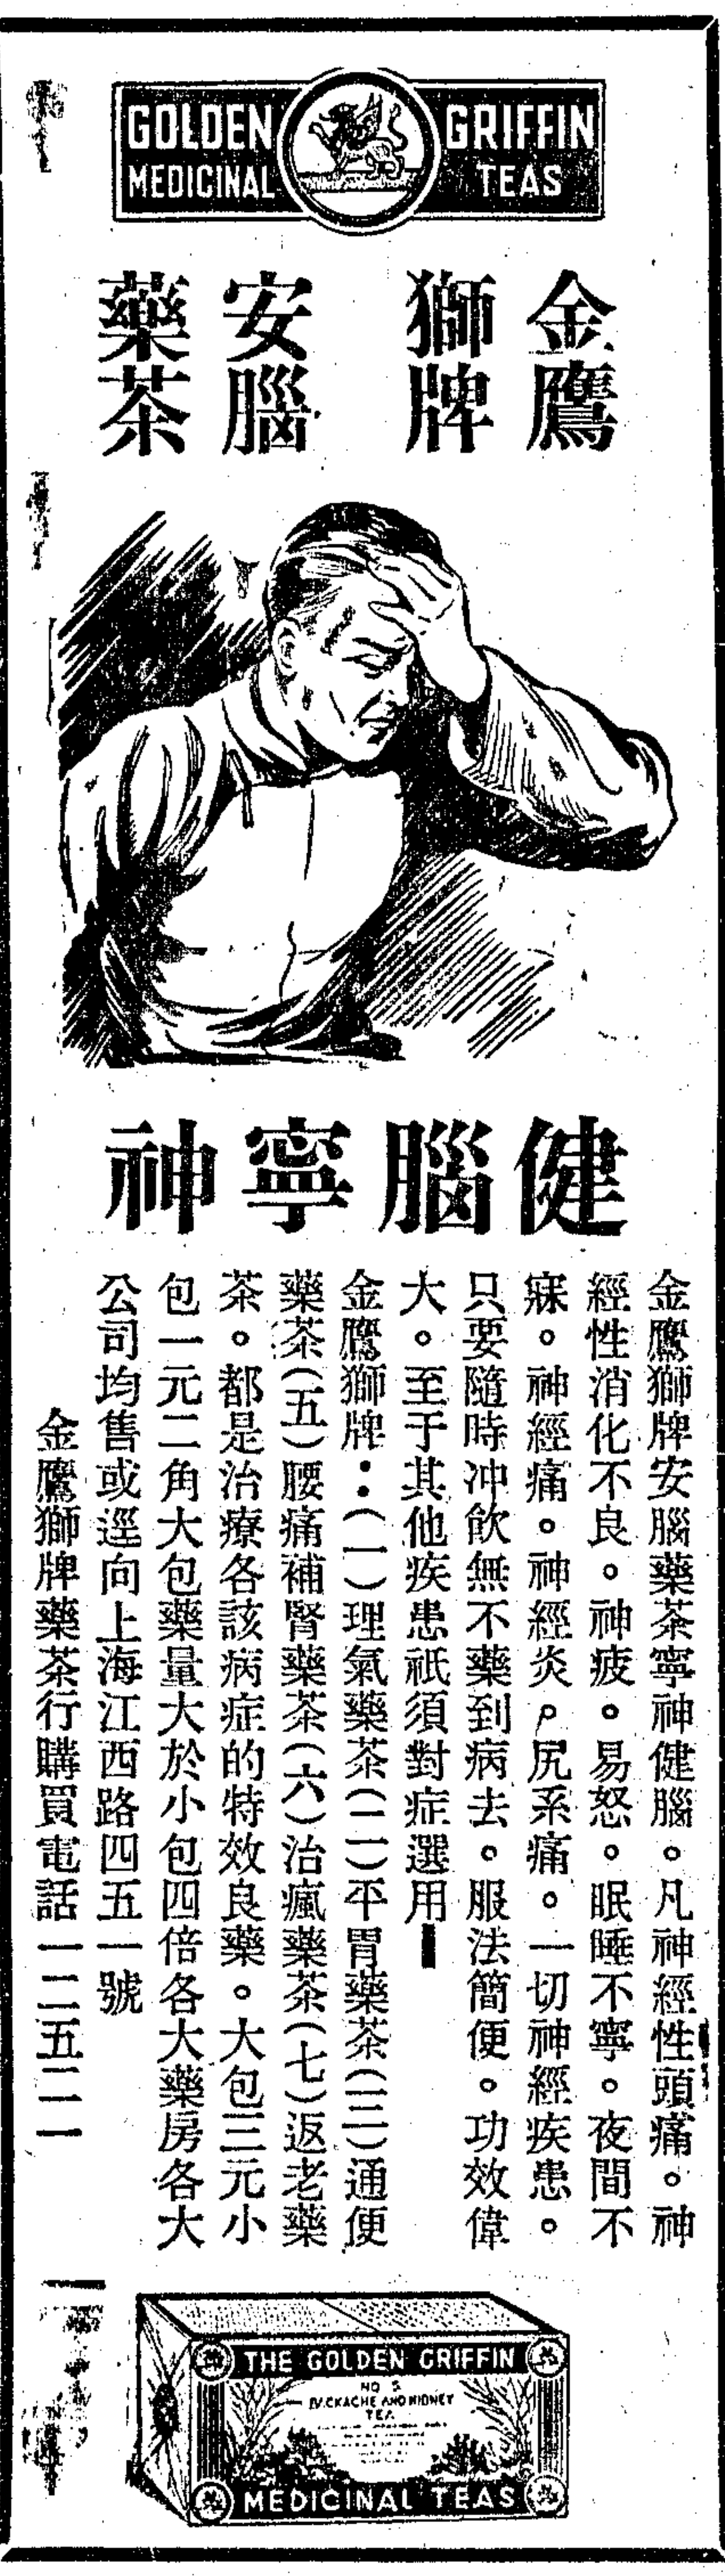 GOLDEN GRIFFIN
MEDICINAL TEAS
金鷹
獅牌
安腦
藥茶
健腦寧神
金鷹獅牌安腦藥茶寧神健腦。凡神經性頭痛。神
經性消化不良。神疲。易怒。眠睡不寧。夜間不
寐。神經痛。神經炎。尻系痛。一切神經疾患。
只要隨時冲飲無不藥到病去。服法簡便。功效偉
大。至于其他疾患祇須對症選用
金鷹獅牌：(一)理氣藥茶(二)平胃藥茶(三)通便
藥茶(五)腰痛補腎藥茶(六)治瘋藥茶(七)返老藥
茶。都是治療各該病症的特效良藥。大包三元小
包一元二角大包藥量大於小包四倍各大藥房各大
公司均售或逕向上海江西路四五一號
金鷹獅牌藥茶行購買電話一二五二一
THE GOLDEN GRIFFIN
NO 5
BACKACHE AND KIDNEY
TEA
MEDICINAL TEAS